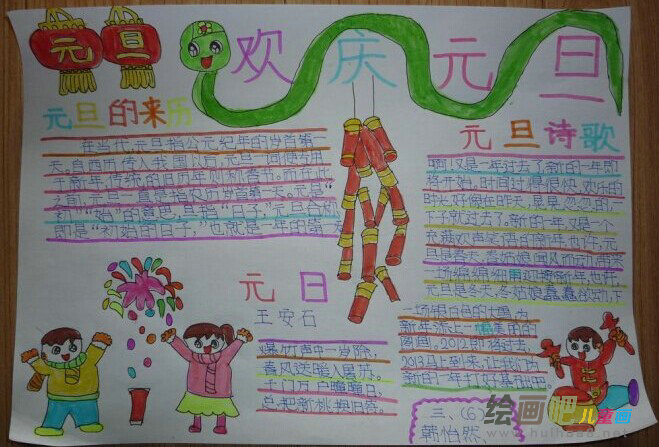 元旦
欢庆元旦
元旦的来历
在当代,元旦指公元纪年的岁首第一
天。自西历传入我国以后,元旦一词便专用
于新年,传统的日历年则称春节。而在此
之前,元旦一直是指农历岁首第一天。元是"
初""始"的意思,旦指"日子",元旦合称
即是"初始的日子,"也就是一年的第
元旦诗歌
啊!又是一年过去了新的一年即
将开始,时间过得很快,欢乐的
时光好像在昨天,
下子就过去了。新的一年又是一个
元旦是冬天,冬姑娘蠢蠢欲动,下
一场银白色的大雪为
新年添上一幅美丽的
图画,2012即将过去,
2013马上到来,让我们为
新的一年
元日
王安石
爆竹声中一岁除,
春风送暖入屠苏。
千门万户曈曈日,
总把新桃换旧符。
三、(6)
韩怡然
绘画吧儿童画
huihua8.com